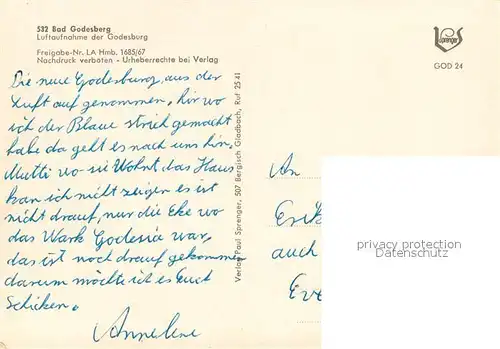 532 Bad Godesberg
Luftaufnahme der Godesburg
Freigabe-Nr. LA Hmb. 1685/67
Nachdruck verboten - Urheberrechte bei Verlag
Sprenger
GOD 24
Die neue Godesburg, aus der
Luft auf genommen, hir wo
ich der Blaue strich gemacht
habe da geht es nach uns hin.
Mutti wo sie Wohnt, das Haus
kan ich nicht zeigen es ist
nicht drauf, nur die Eke wo
das Wark Godesia war,
das ist noch drauf gekommen
darum möchte ich es Euch
Schicken.
Annelene
Verlag Paul Sprenger, 507 Bergisch Gladbach, Ruf 25 41
An
auch
privacy protection
oldthing.de